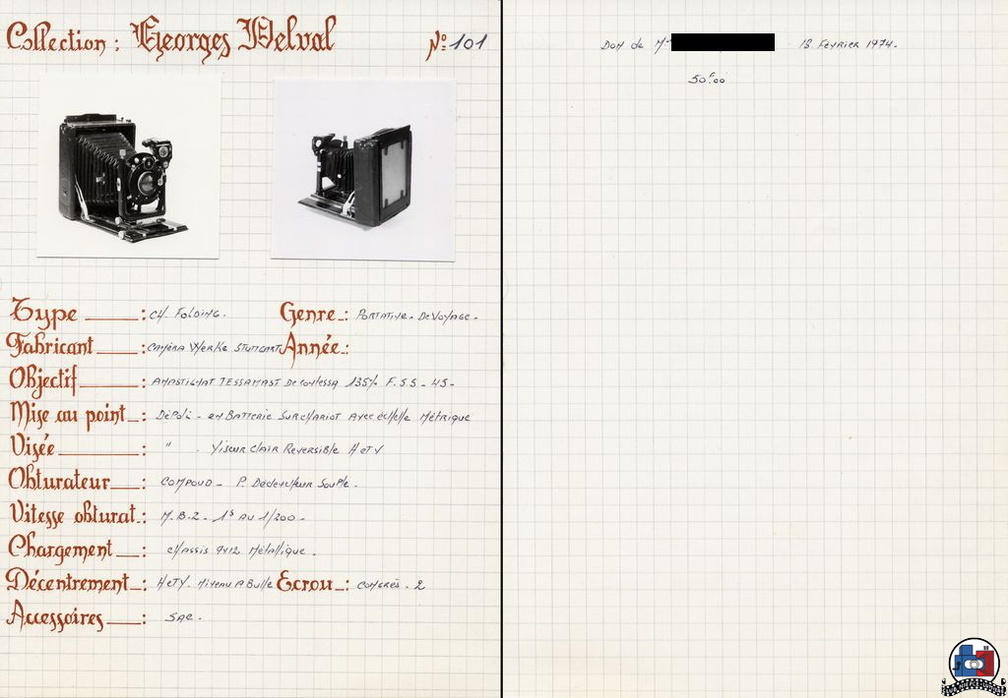 Collection : Georges Delval Nº 101
Type : CH. FOLDING. Genre : PORTATIVE. DE VOYAGE.
Fabricant : CAMERA WERKE STUTTGART Année :
Objectif : ANASTIGMAT TESSAMAST DE CONTESSA 135m/m F. 5.5 - 45-
Mise au point : DÉPOLI - en BATTERIE SUR CHARIOT AVEC ÉCHELLE MÉTRIQUE
Visée : " . VISEUR CLAIR REVERSIBLE H et V
Obturateur : COMPOUD - P. Déclencheur SOUPLE.
Vitesse obturat. : M.B.Z. 1s AU 1/200 -
Chargement : CHASSIS 9x12 MÉTALLIQUE.
Décentrement : H et V. Niveau A Bulle Ecrou : CONGRÈS. 2
Accessoires : SAC.
DON de Mr 18. FÉVRIER 1974.
50F00